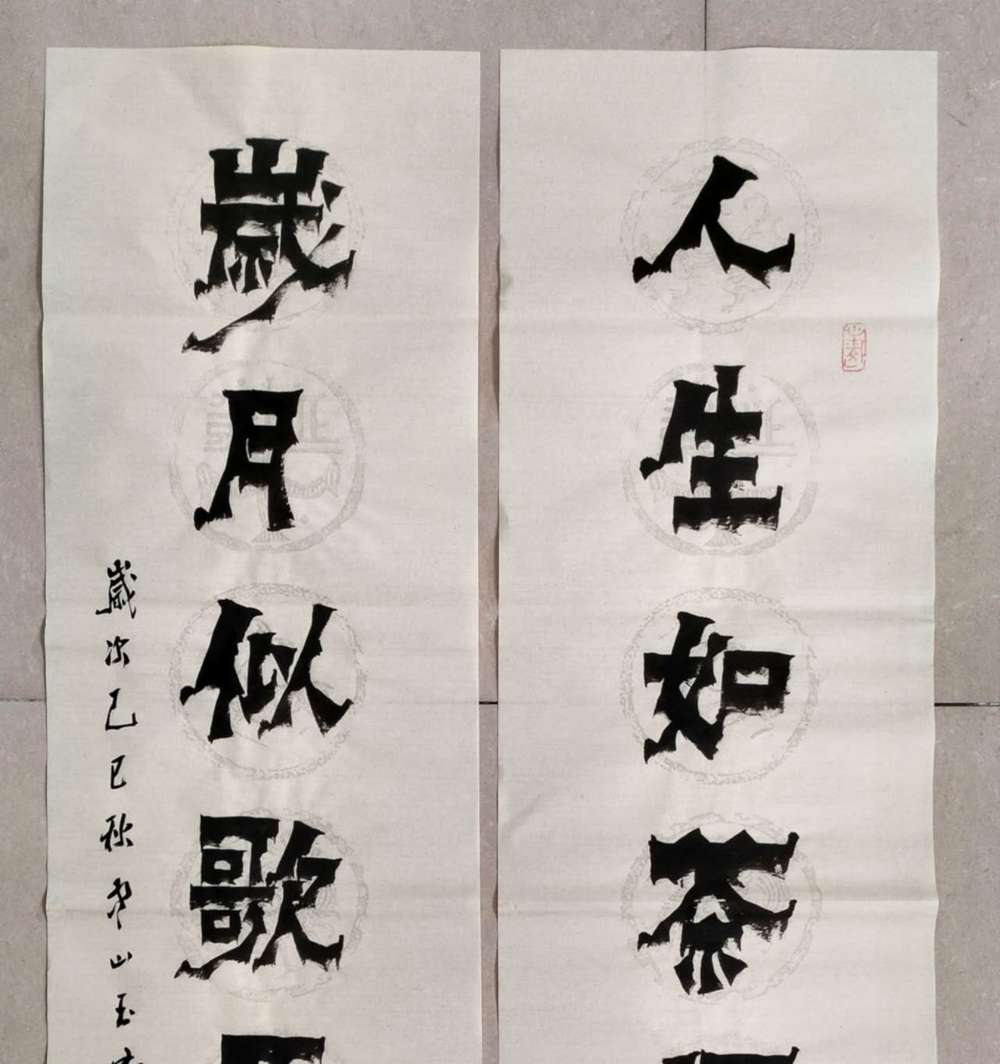 人生如茶
歲月似歌
歲次乙巳秋 山玉